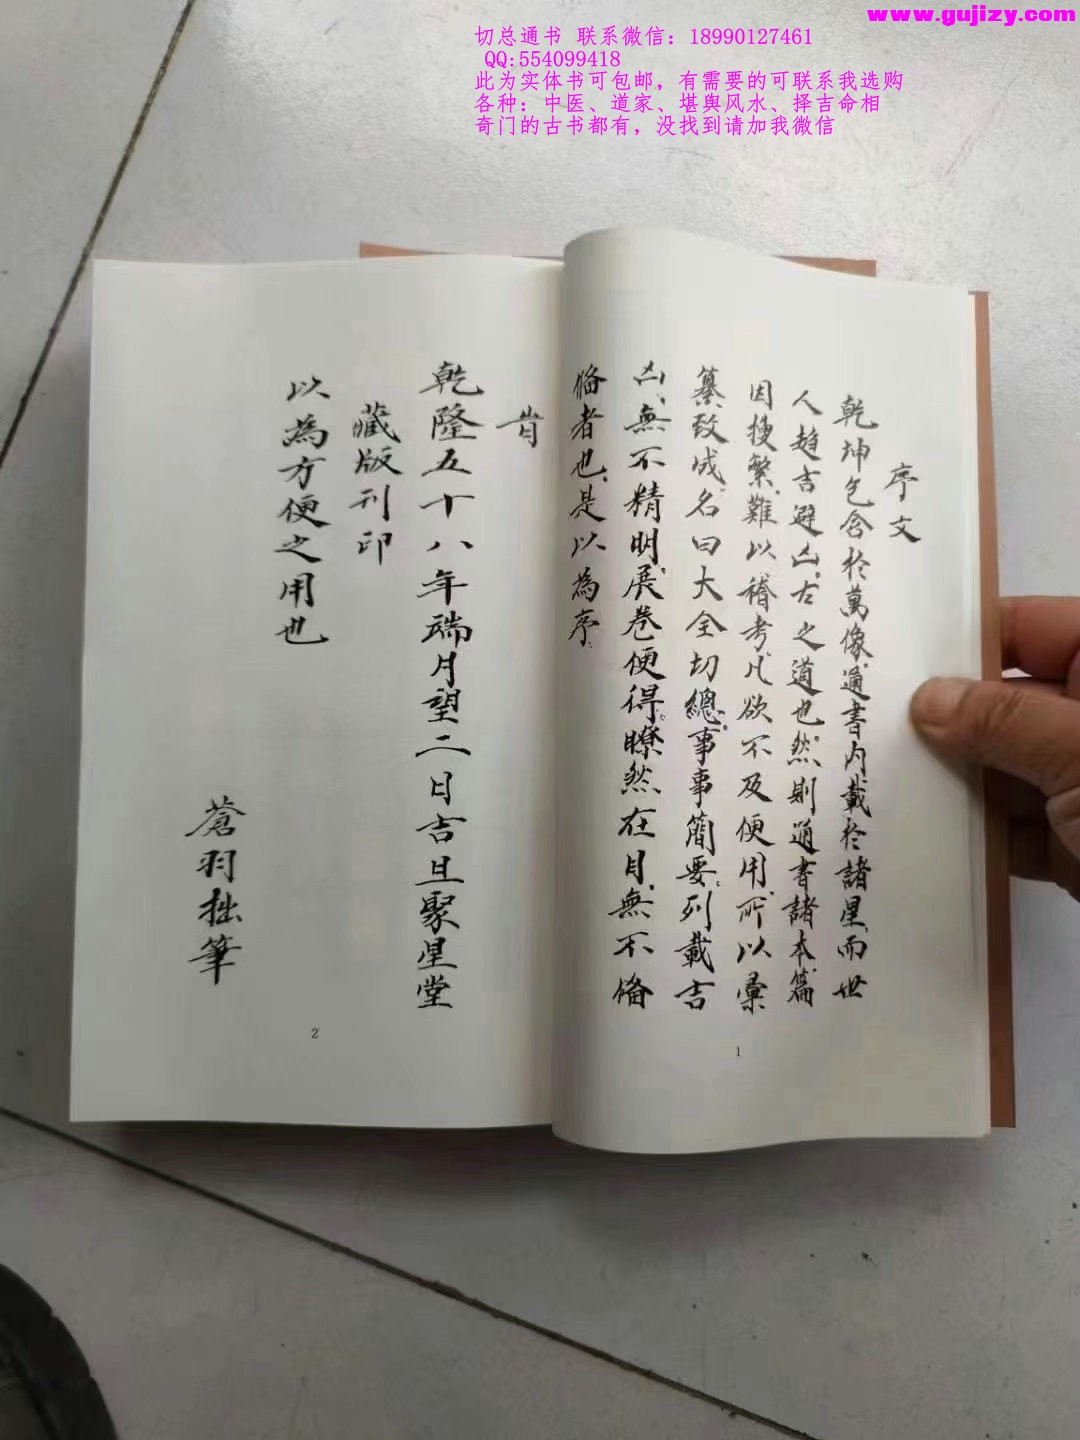 www.gujizy.com
切总通书 联系微信：18990127461
QQ:554099418
此为实体书可包邮，有需要的可联系我选购
各种：中医、道家、堪舆风水、择吉命相
奇门的古书都有，没找到请加我微信
序文
乾坤包含於萬像。通書内載於諸星。而世
人趋吉避凶。古之道也。然則通書諸本篇
因搜繁。難以稽考。凡欲不及便用。所以彙
纂致成。名曰大全切總。事事簡要。列載吉
凶。無不精明。展卷便得。瞭然在目。無不俻
俻者也。是以為序。
1
肯
乾隆五十八年端月望二日吉旦聚星堂
藏版刊印
以為方便之用也
蒼羽拙筆
2